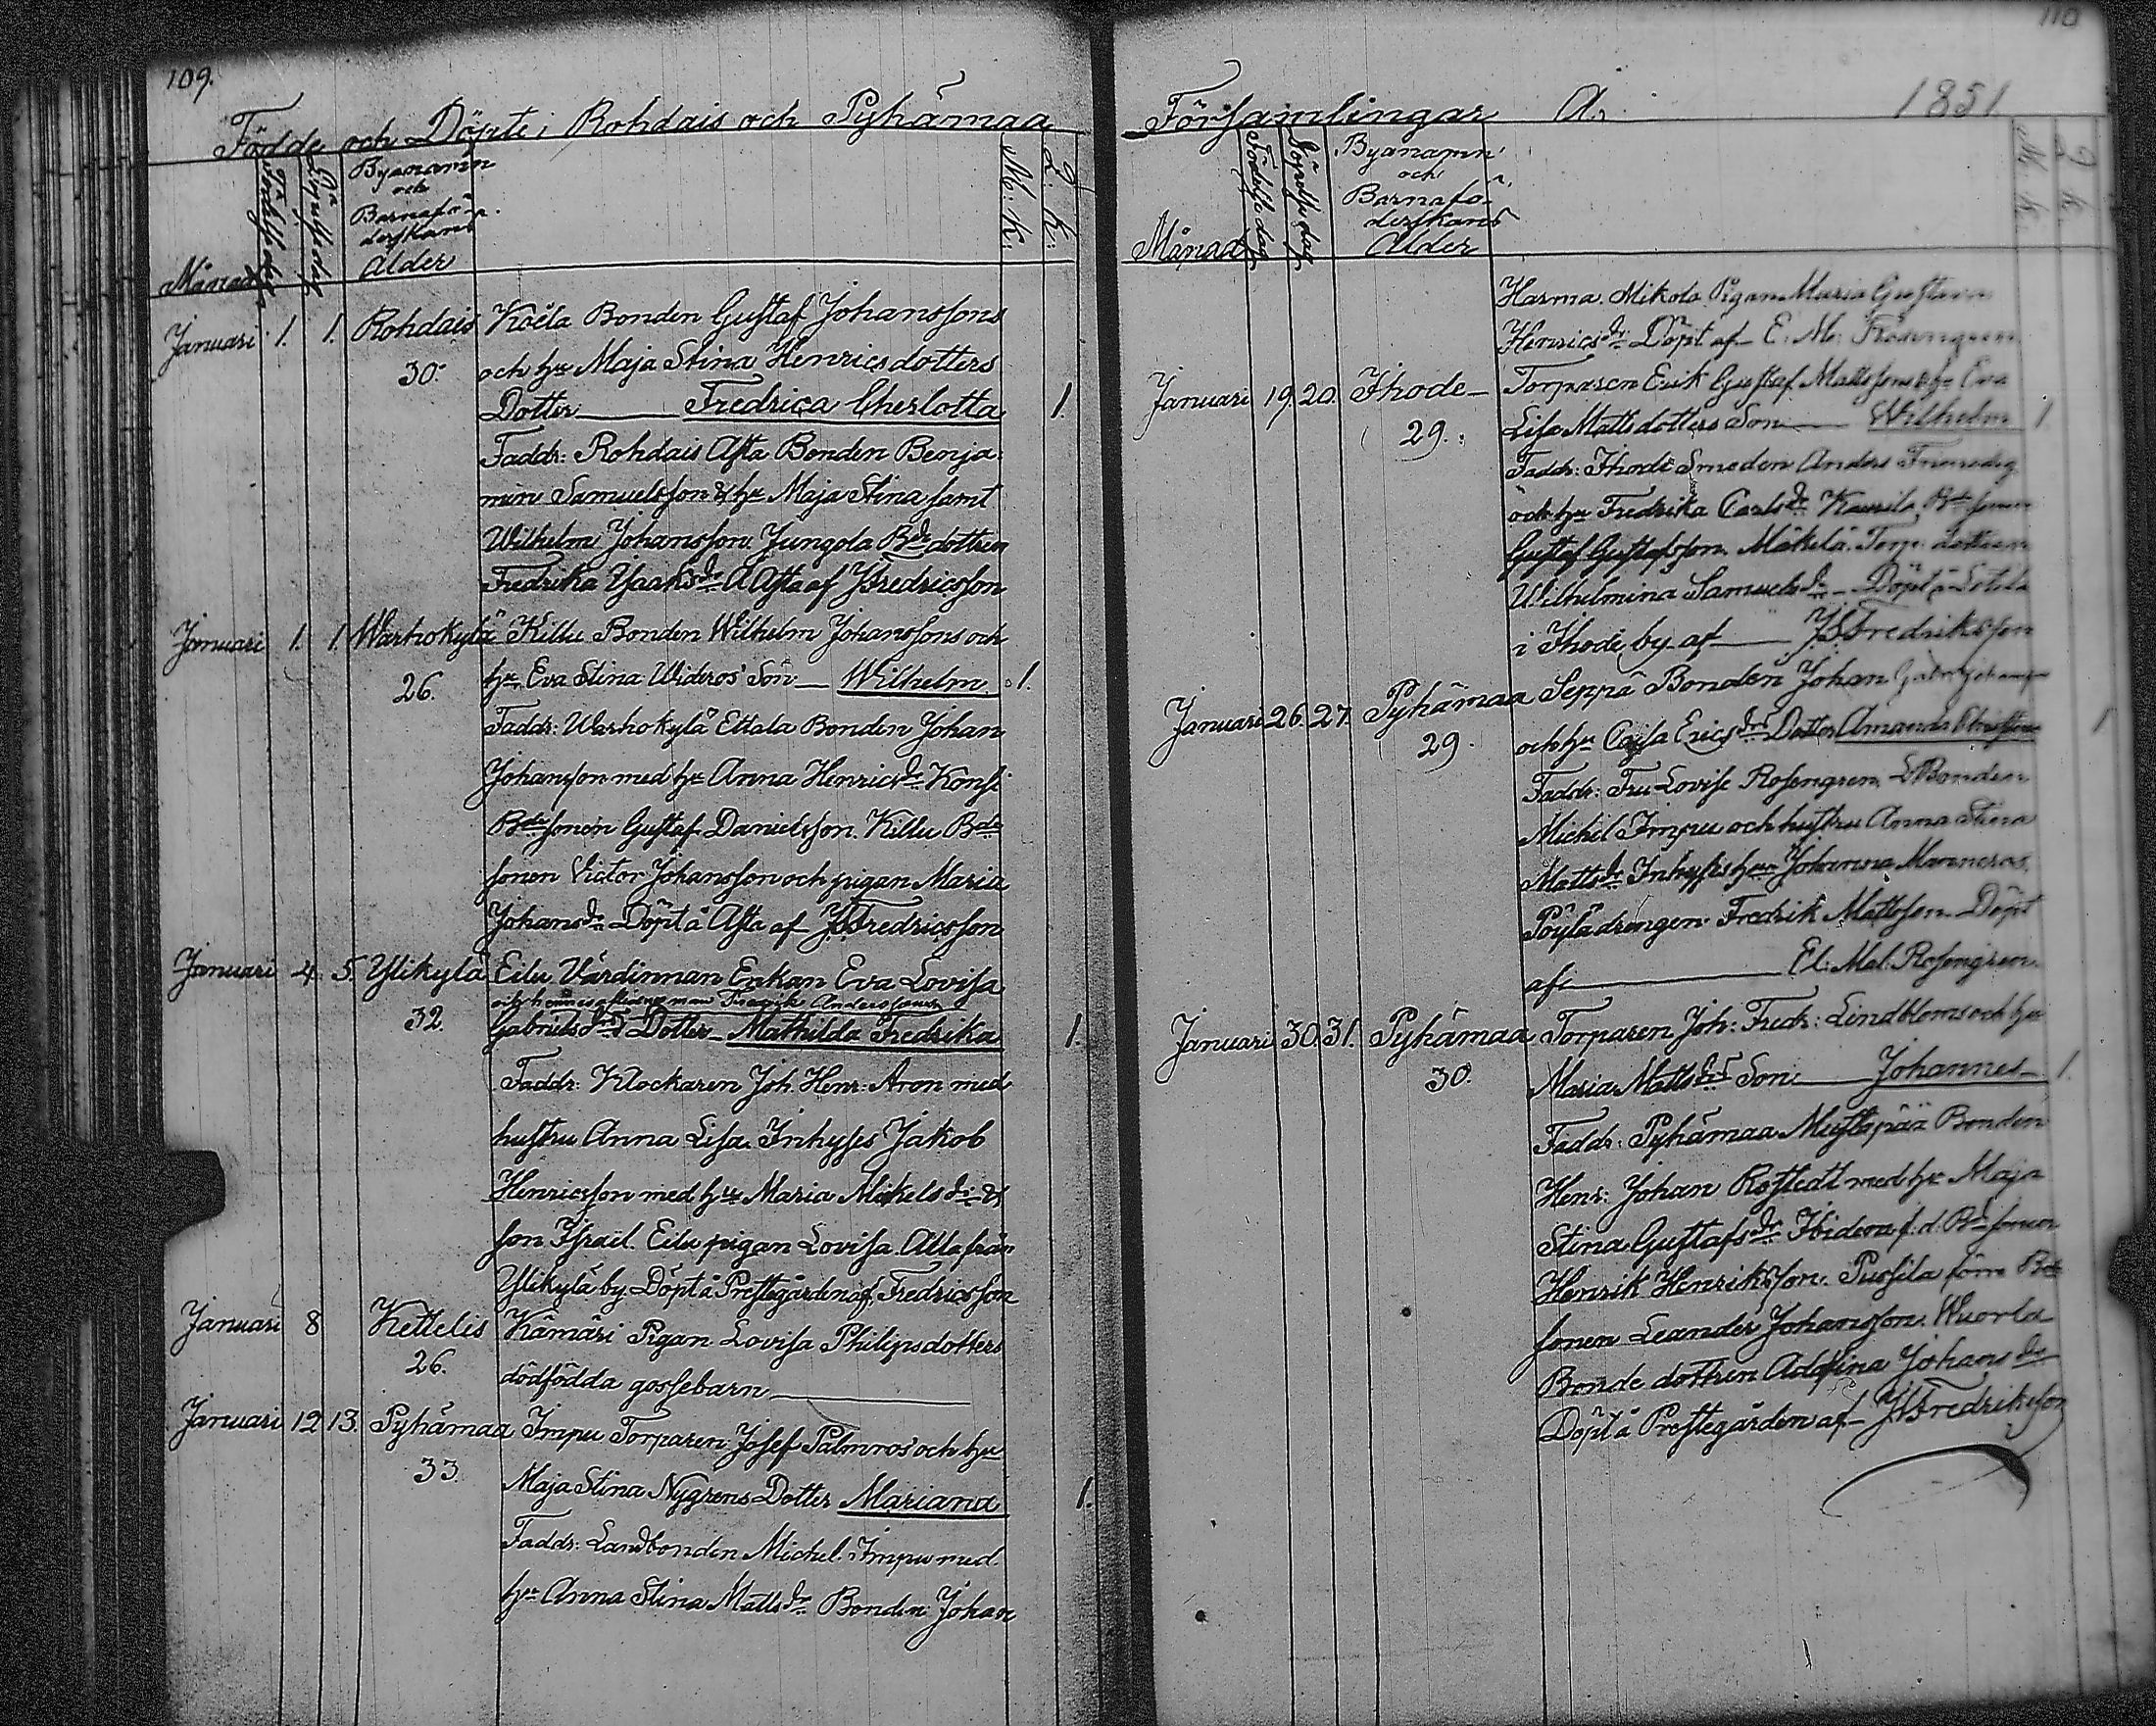 109.
Födde och Döpte i Rohdais och Pyhämaa
Månad
Födelse dag
Döpelse dag
Byanamn
och
Barnafö-
derskans
Alder
M. K.
Q. K.
Januari 1. 1. Rohdais Koëla Bonden Gustaf Johanssons
30. och hu Maja Stina Henricsdotters
Dotter Fredrica Cherlotta 1.
Faddr: Rohdais Asta Bonden Benja-
min Samuelsson & hu Maja Stina samt
Wilhelm Johansson. Jungola Bde dottren
Fredrika Isaaksdr. Å Asta af JFredricsson
Januari 1. 1. Warhokylä Killu Bonden Wilhelm Johanssons och
26. hu Eva Stina Wideros' Son Wilhelm. 1.
Faddr: Warhokylä Ettala Bonden Johan
Johansson med hu Anna Henricsdr. Konsi
Bde sonen Gustaf Danielsson. Killu Bde
sonen Victor Johansson och pigan Maria
Johansdr. Döpt å Asta af JFredricsson
Januari 4. 5. Ylikylä Eilu Värdinnan Enkan Eva Lovisa
och hennes aflidne man Fredrik Anderssons
32. Gabrielsdrs Dotter Mathilda Fredrika 1.
Faddr: Klockaren Joh. Henr: Aron med
hustru Anna Lisa. Inhyses Jakob
Henricsson med hu Maria Mikelsdr. &
son Israel. Eilu pigan Lovisa. Alla från
Ylikylä by. Döpt å Prestegården af Fredricsson
Januari 8 Kettelis Kämäri Pigan Lovisa Philipsdotters
26. dödfödda gossebarn
Januari 12 13. Pyhämaa Impu Torparen Josef Palmros' och hu
33. Maja Stina Nygrens Dotter Mariana 1.
Faddr: Landbonden Michel Impu med
hu Anna Stina Mattsdr. Bonden Johan
110
Församlingar A. 1851
Månad
Födelse dag
Döpelse dag
Byanamn
och
Barnafö-
derskans
Alder
M. K.
Q. K.
Harma. Mikola Pigan Maria Gustava
Henricsdr. Döpt af E. M.
Januari 19. 20. Ihode Torparen Erik Gustaf Mattssons & hu Eva
29. Lisa Mattsdotters Son Wilhelm 1
Faddr: Ihode Smeden Anders
och hu Fredrika Carlsdr. Kaurila Bde sonen
Gustaf Gustafsson. Mäkelä Torp: dottren
Wilhelmina Samuelsdr. Döpt å
i Ihode by af JFredriksson
Januari 26. 27. Pyhämaa Seppä Bonden Johan
29. och hu Cajsa Ericsdrs Dotter Amanda 1
Faddr: Fru Lovise Rosengren, LBonden
Michel Impu och hustru Anna Stina
Mattsdr. Inhyses hu Johanna
Pöylä drengen Fredrik Mattsson Döpt
af El: Mal. Rosengren.
Januari 30. 31. Pyhämaa Torparen Joh: Fredr: Lindbloms och hu
30. Maria Mattsdrs Son Johannes 1.
Faddr: Pyhämaa Mustapää Bonden
Henr: Johan Rostedt med hu Maja
Stina Gustafsdr. Ibidem f.d. Bde sonen
Henrik Henriksson. Pussila förra Bde
sonen Leander Johansson. Wuorla
Bonde dottren Adolfina Johansdr
Döpt å Prestegården af JFredriksson